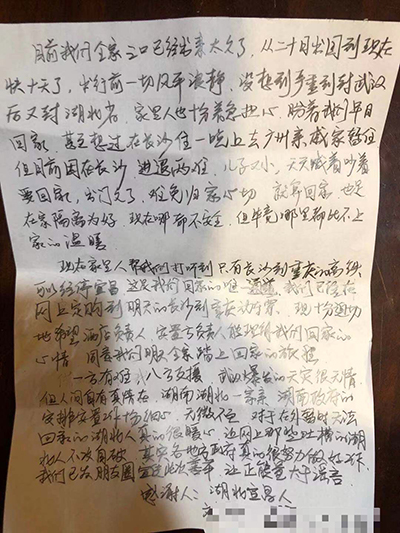 目前我们全家三口已经出来太久了，从二十日出国到现在
快十天了，出行前一切风平浪静，没想到严重到封武汉
后又封湖北省，家里人也十分着急担心，盼着我们早日
回家，甚至想过在长沙住一晚上去广州亲戚家暂住
但目前困在长沙 进退两难，儿子又小，天天喊着吵着
要回家，出门久了，难免归家心切 就算回家 也是
在家隔离为好 现在哪都不安全，但毕竟哪里都比不上
家的温暖
现在家里人帮我们打听到只有长沙到重庆的高铁
可以经停宜昌 这是我们回家的唯一通道，我们已经在
网上定购到明天的长沙到重庆动车票，现十分迫切
地希望酒店负责人，安置点负责人能理解我们回家的
心情，同意我们明天全家踏上回家的旅程
一方有难，八方支援，武汉爆发的天灾很无情
但人间自有真情在，湖南湖北一家亲，湖南政府的
安排安置工作十分细心，无微不至，对于在外暂时无法
回家的湖北人真的很暖心，让网上那些歧视的湖
北人不攻自破，其实各地方政府真的很努力做好工作
我们已在朋友圈宣传此次善举，让正能量大于谣言
感谢人：湖北宜昌人